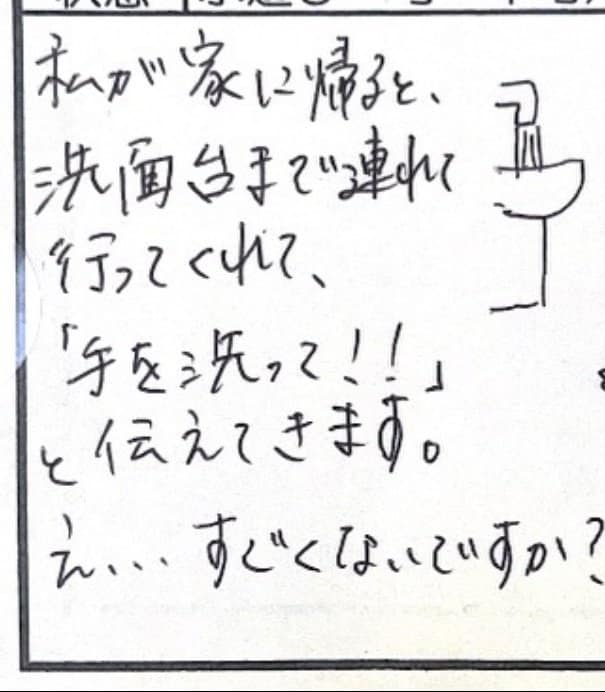 私が家に帰ると、
洗面台まで連れて
行ってくれて、
「手を洗って!!」
と伝えてきます。
え、、、すごくないですか?